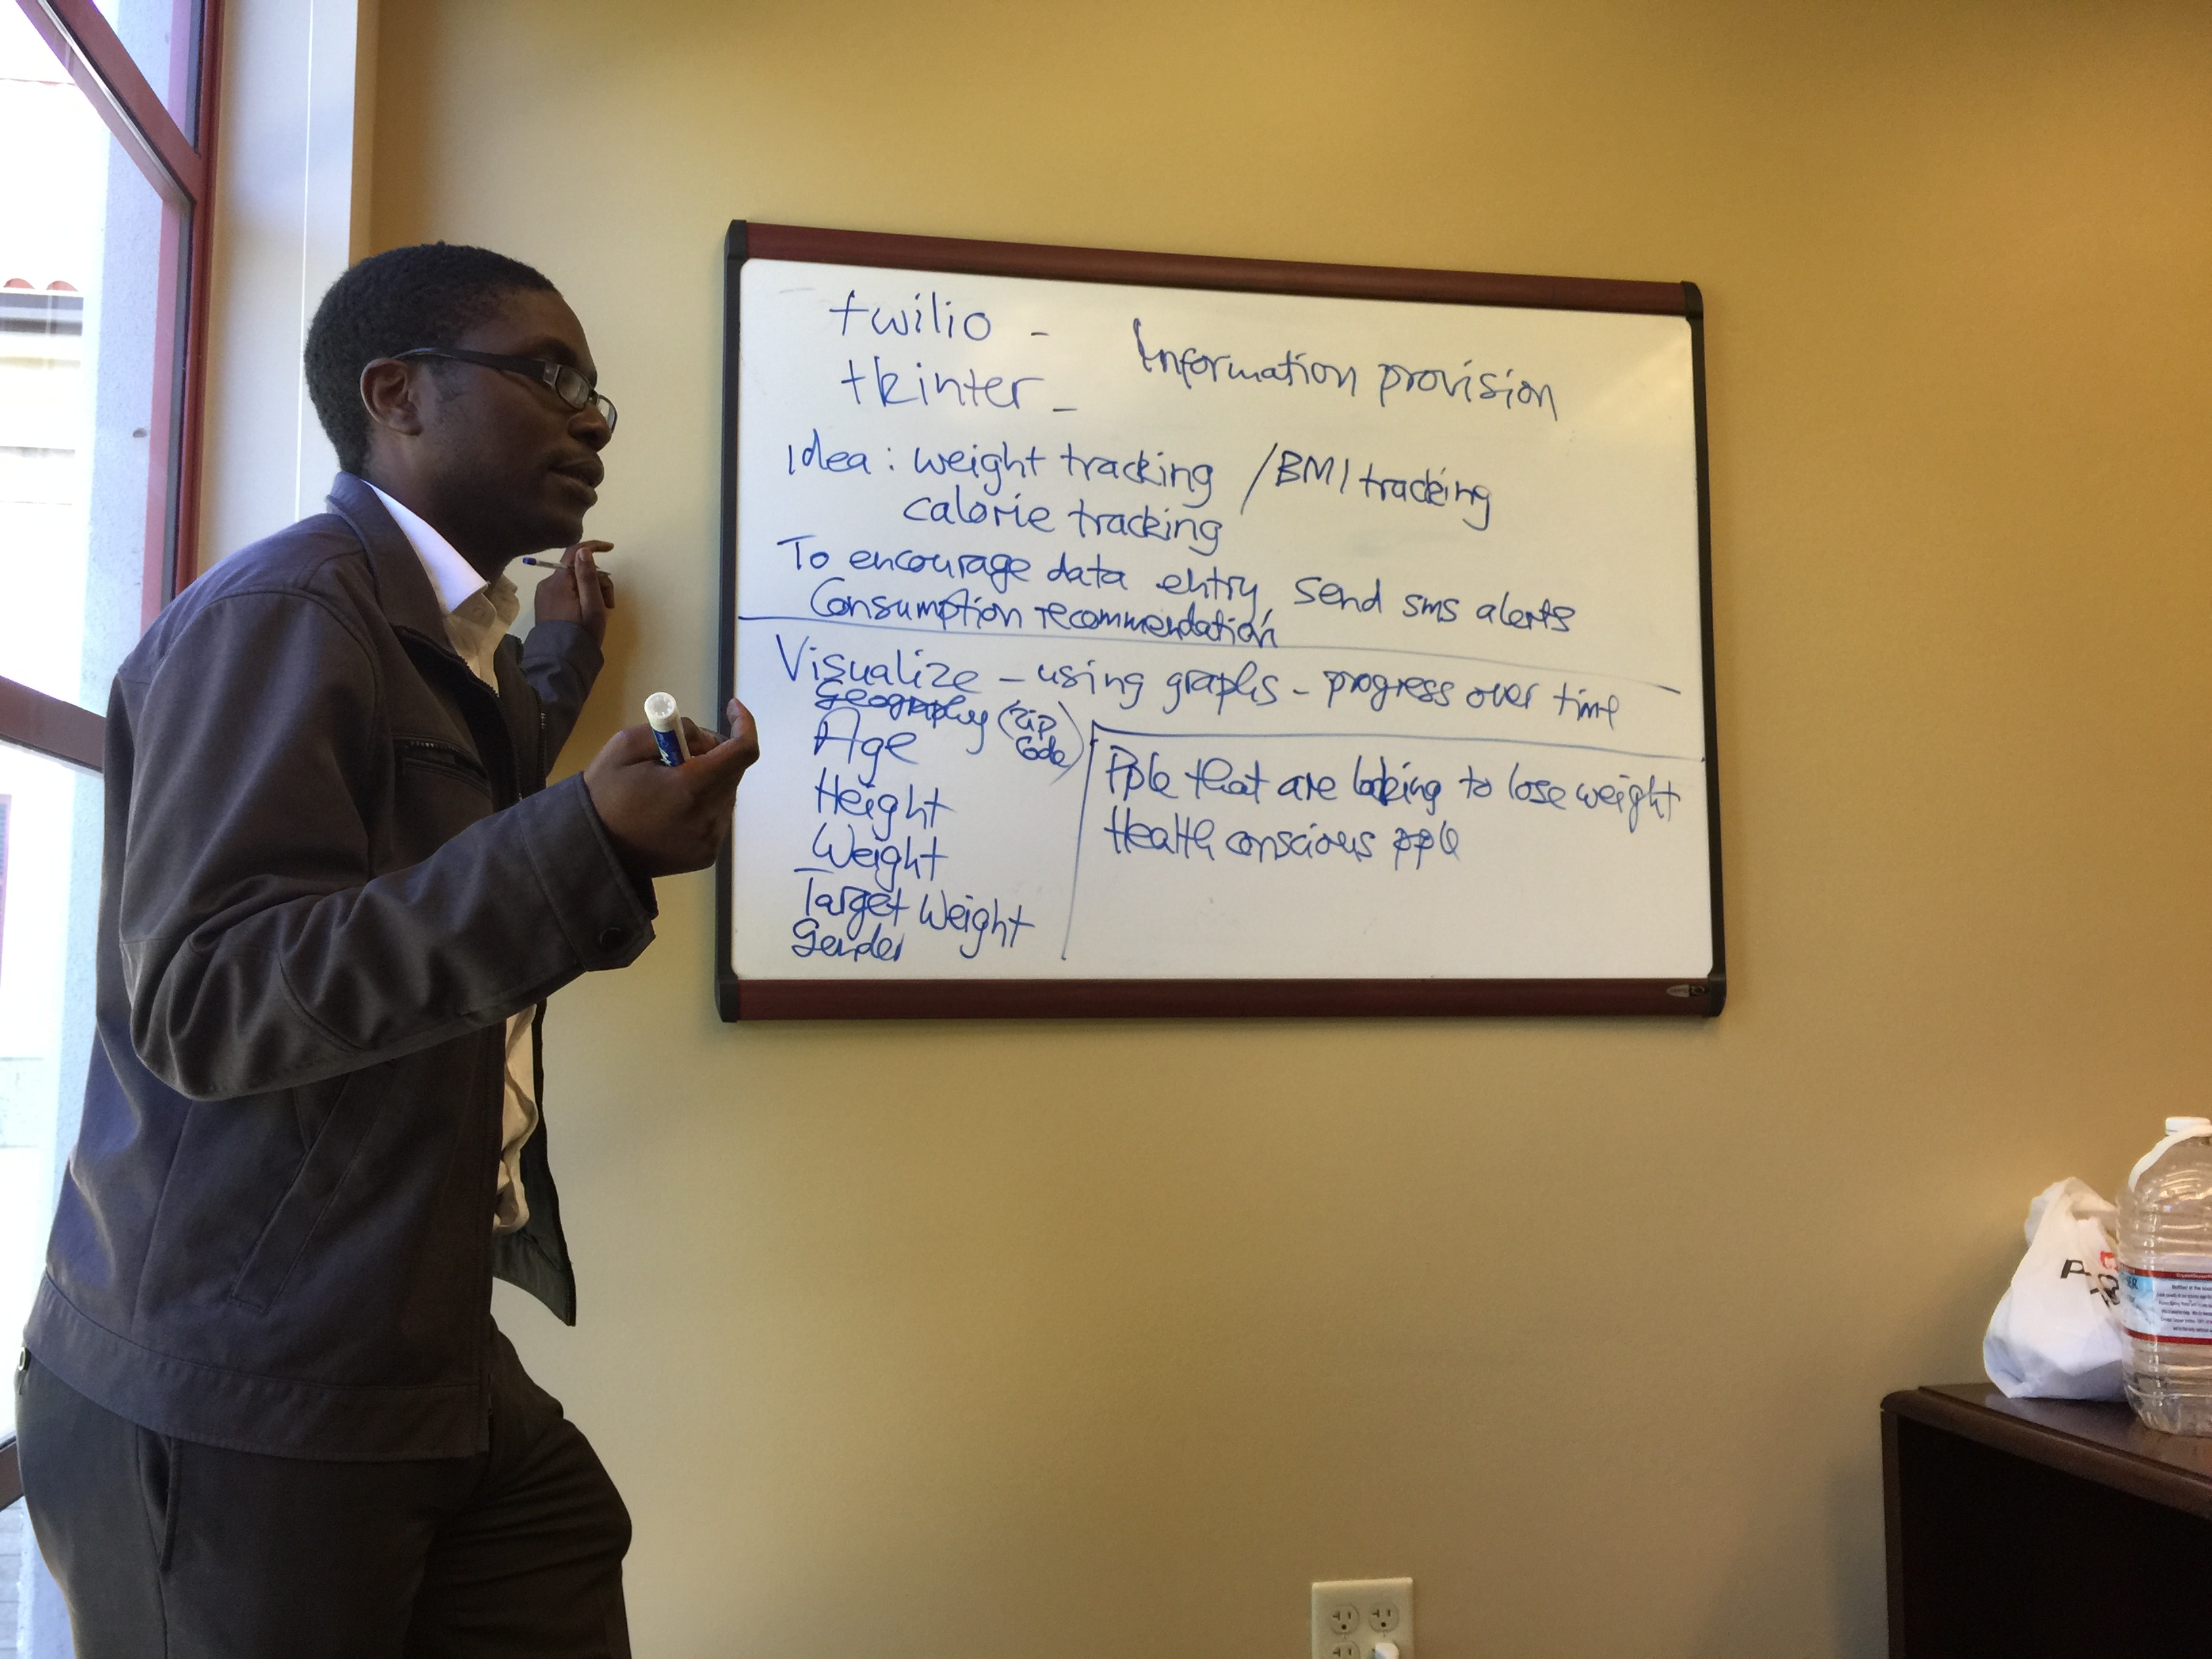 twilio -
tkinter -
Information provision
Idea : weight tracking / BMI tracking
calorie tracking
To encourage data entry, send sms alerts
Consumption recommendation
Visualize - using graphs - progress over time
Geography (Zip Code)
Age
Height
Weight
Target Weight
Gender
Pple that are looking to lose weight
Health conscious pple